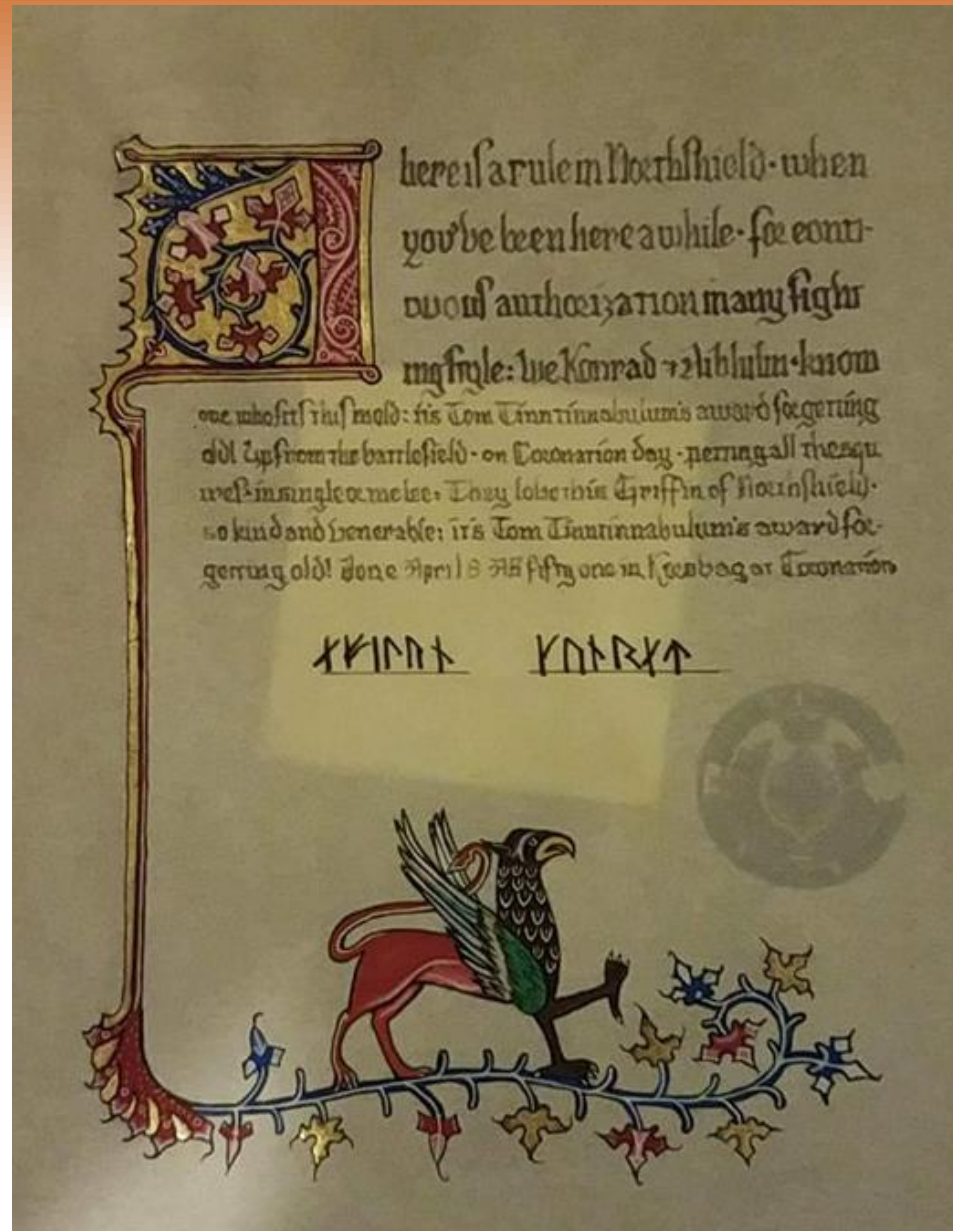 There is a rule in Northshield · when
you've been here a while · for conti-
nuous authorization in any fight
ing style: We Konrad ⁊ · know
one who fits this mold: it's Tom Tinntinnabulum's award for getting
old! Up from the battlefield · on Coronation day · petting all the squ
ires · in single or melee: They love this Griffin of Northshield ·
so kind and venerable: it's Tom Tinntinnabulum's award for-
getting old! Done April 8 AS fifty one in at Coronation
ᛅᚠᛁᛚᚢᚾ ᚴᚢᚾᚱᛅᛏ